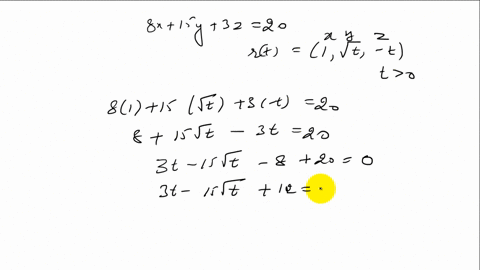 8x+15y+3z=20
x y z
r(t) = (1, √t, -t)
t>0
8(1)+15 (√t) +3(-t) =20
8 + 15√t - 3t =20
3t -15√t - 8 +20 = 0
3t - 15√t + 12 =